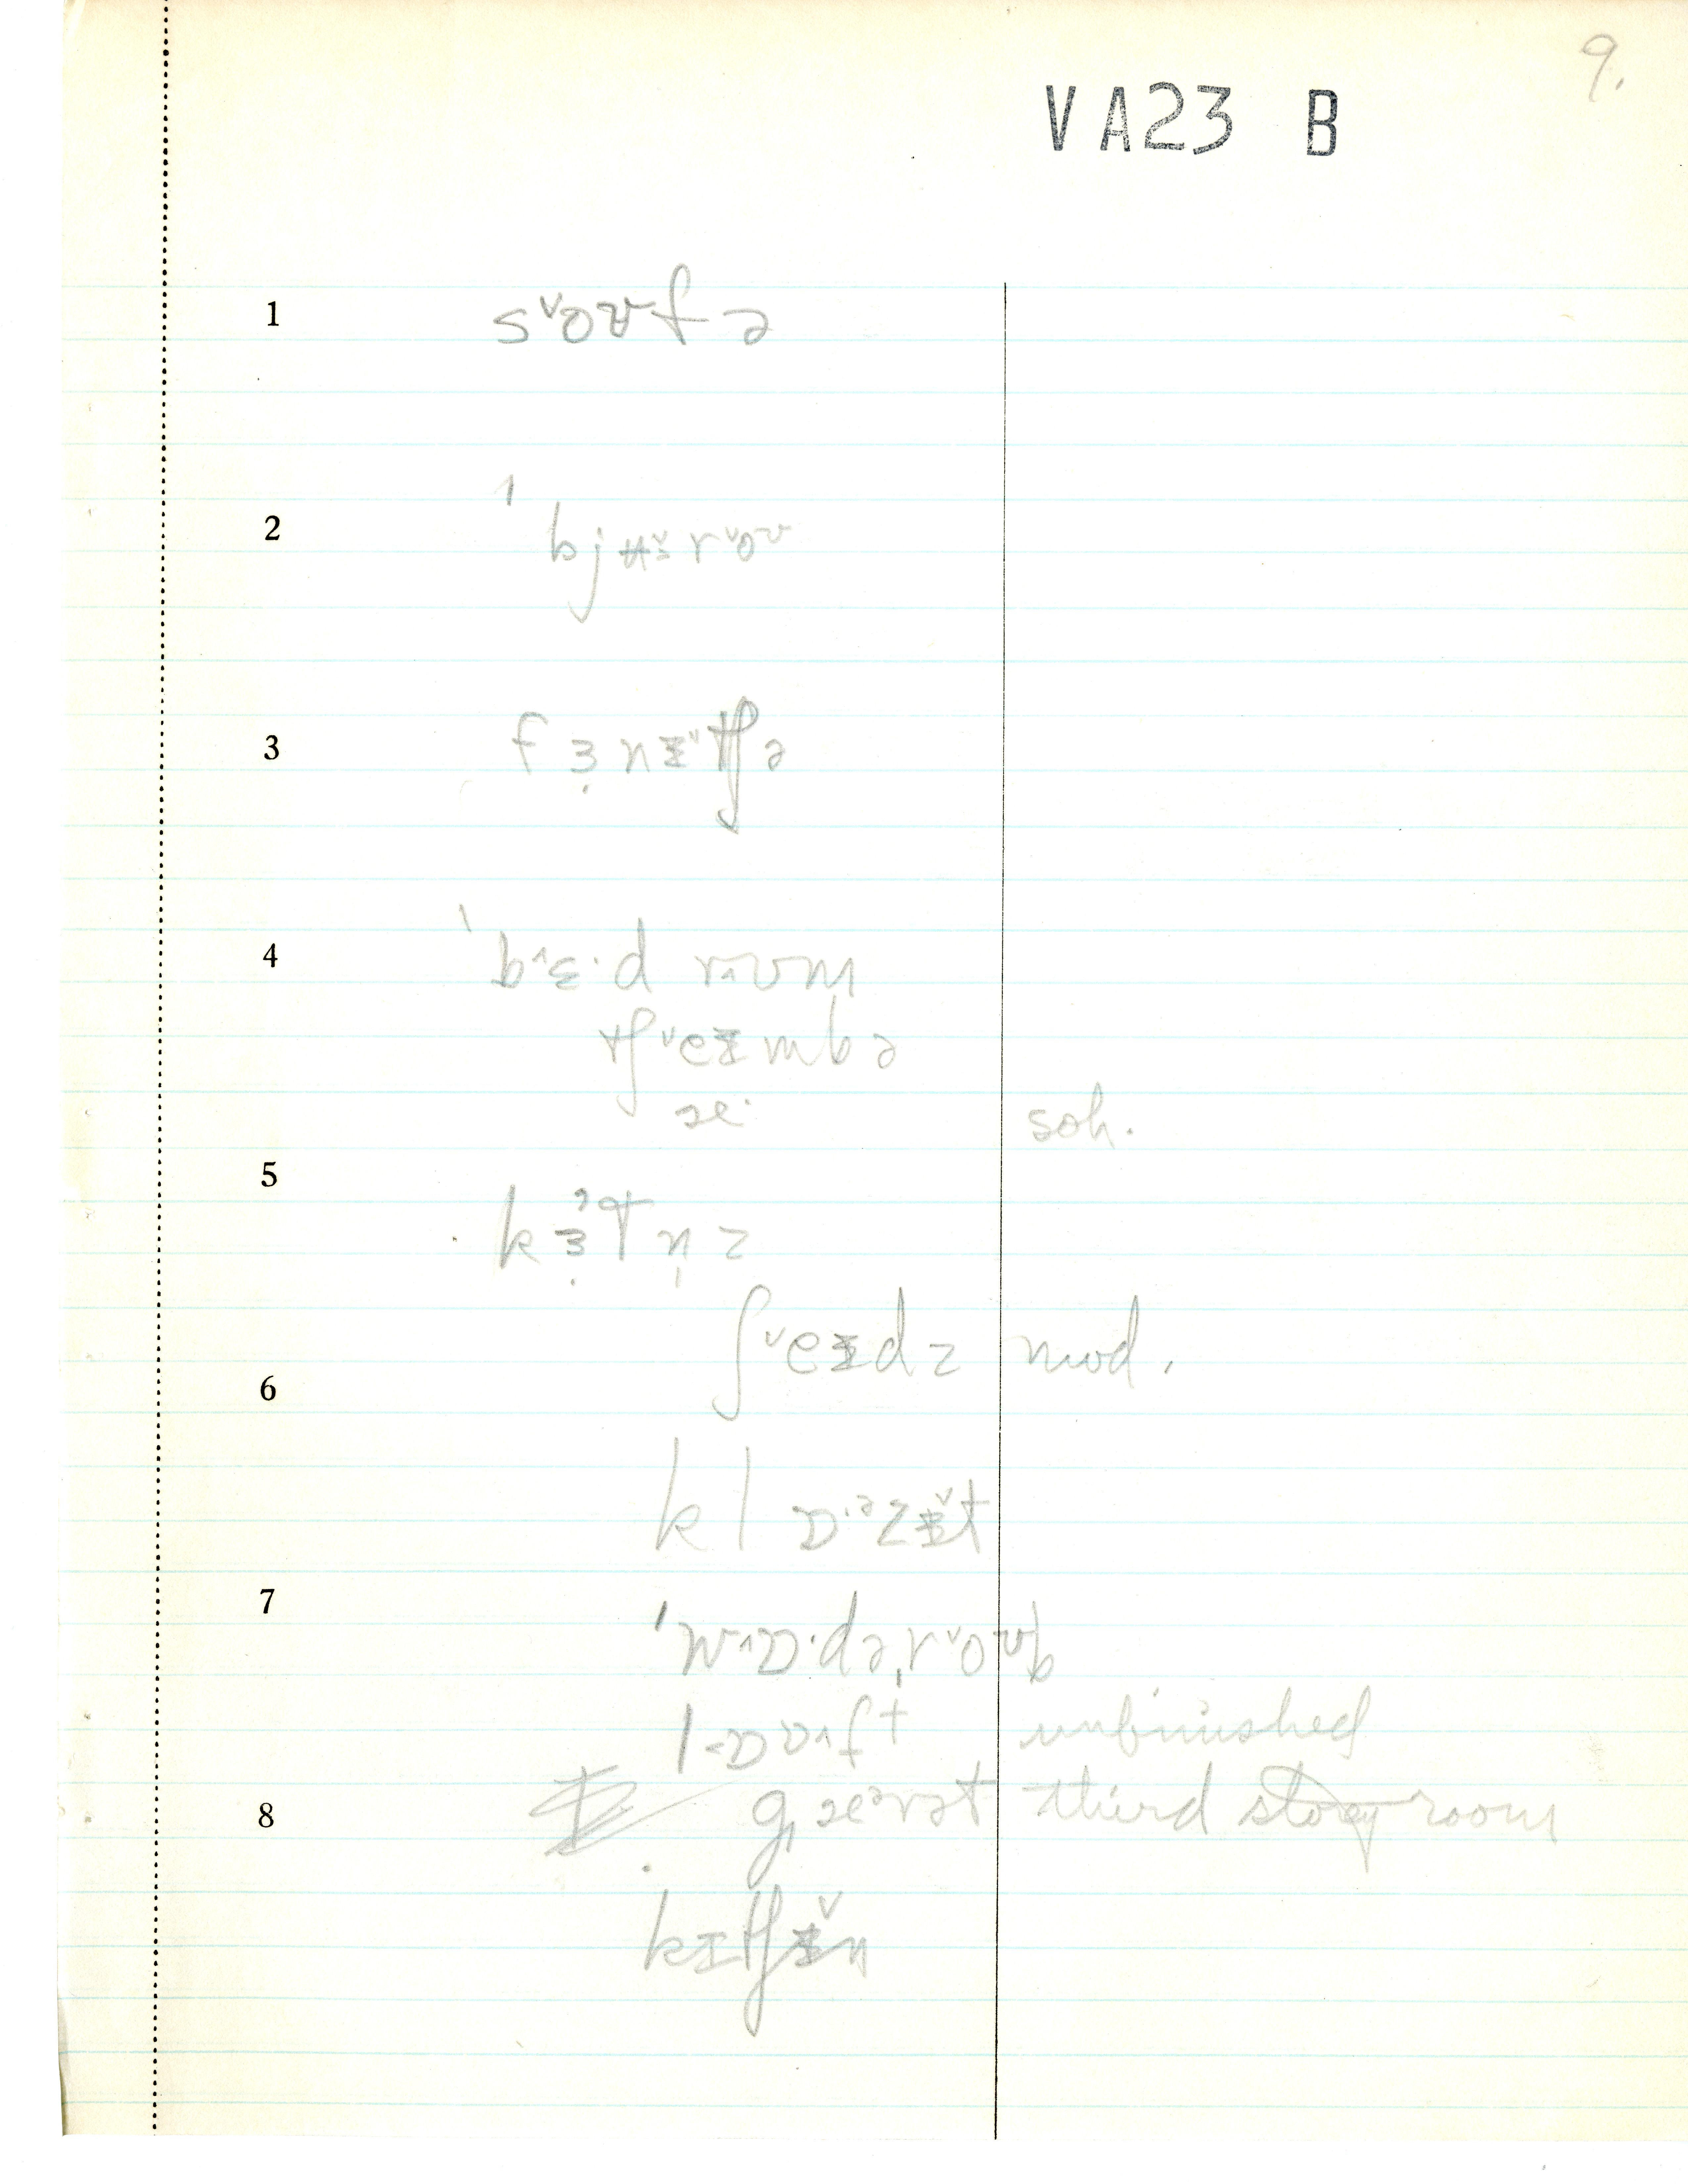 9.
VA23 B
1 s˅oʊfə
2 ˈbjʉ˅r˅oʊ
3 fɜ̣nɪ˅tʃə
4 ˈb˄ɛ·d r˄ʊm
tʃ˅eɪmbə
æ· soh.
5 kɜ̣ˀtn̩z
ʃ˅eɪdz mod.
6
klɒ·ᵊzɪ̌t
7 ˈw˄ɒ·dəˌr˅oʊb
lɒʊ˄ft unfinished
8 gˌæᵊrət third story room
kɪtʃɪ̌n